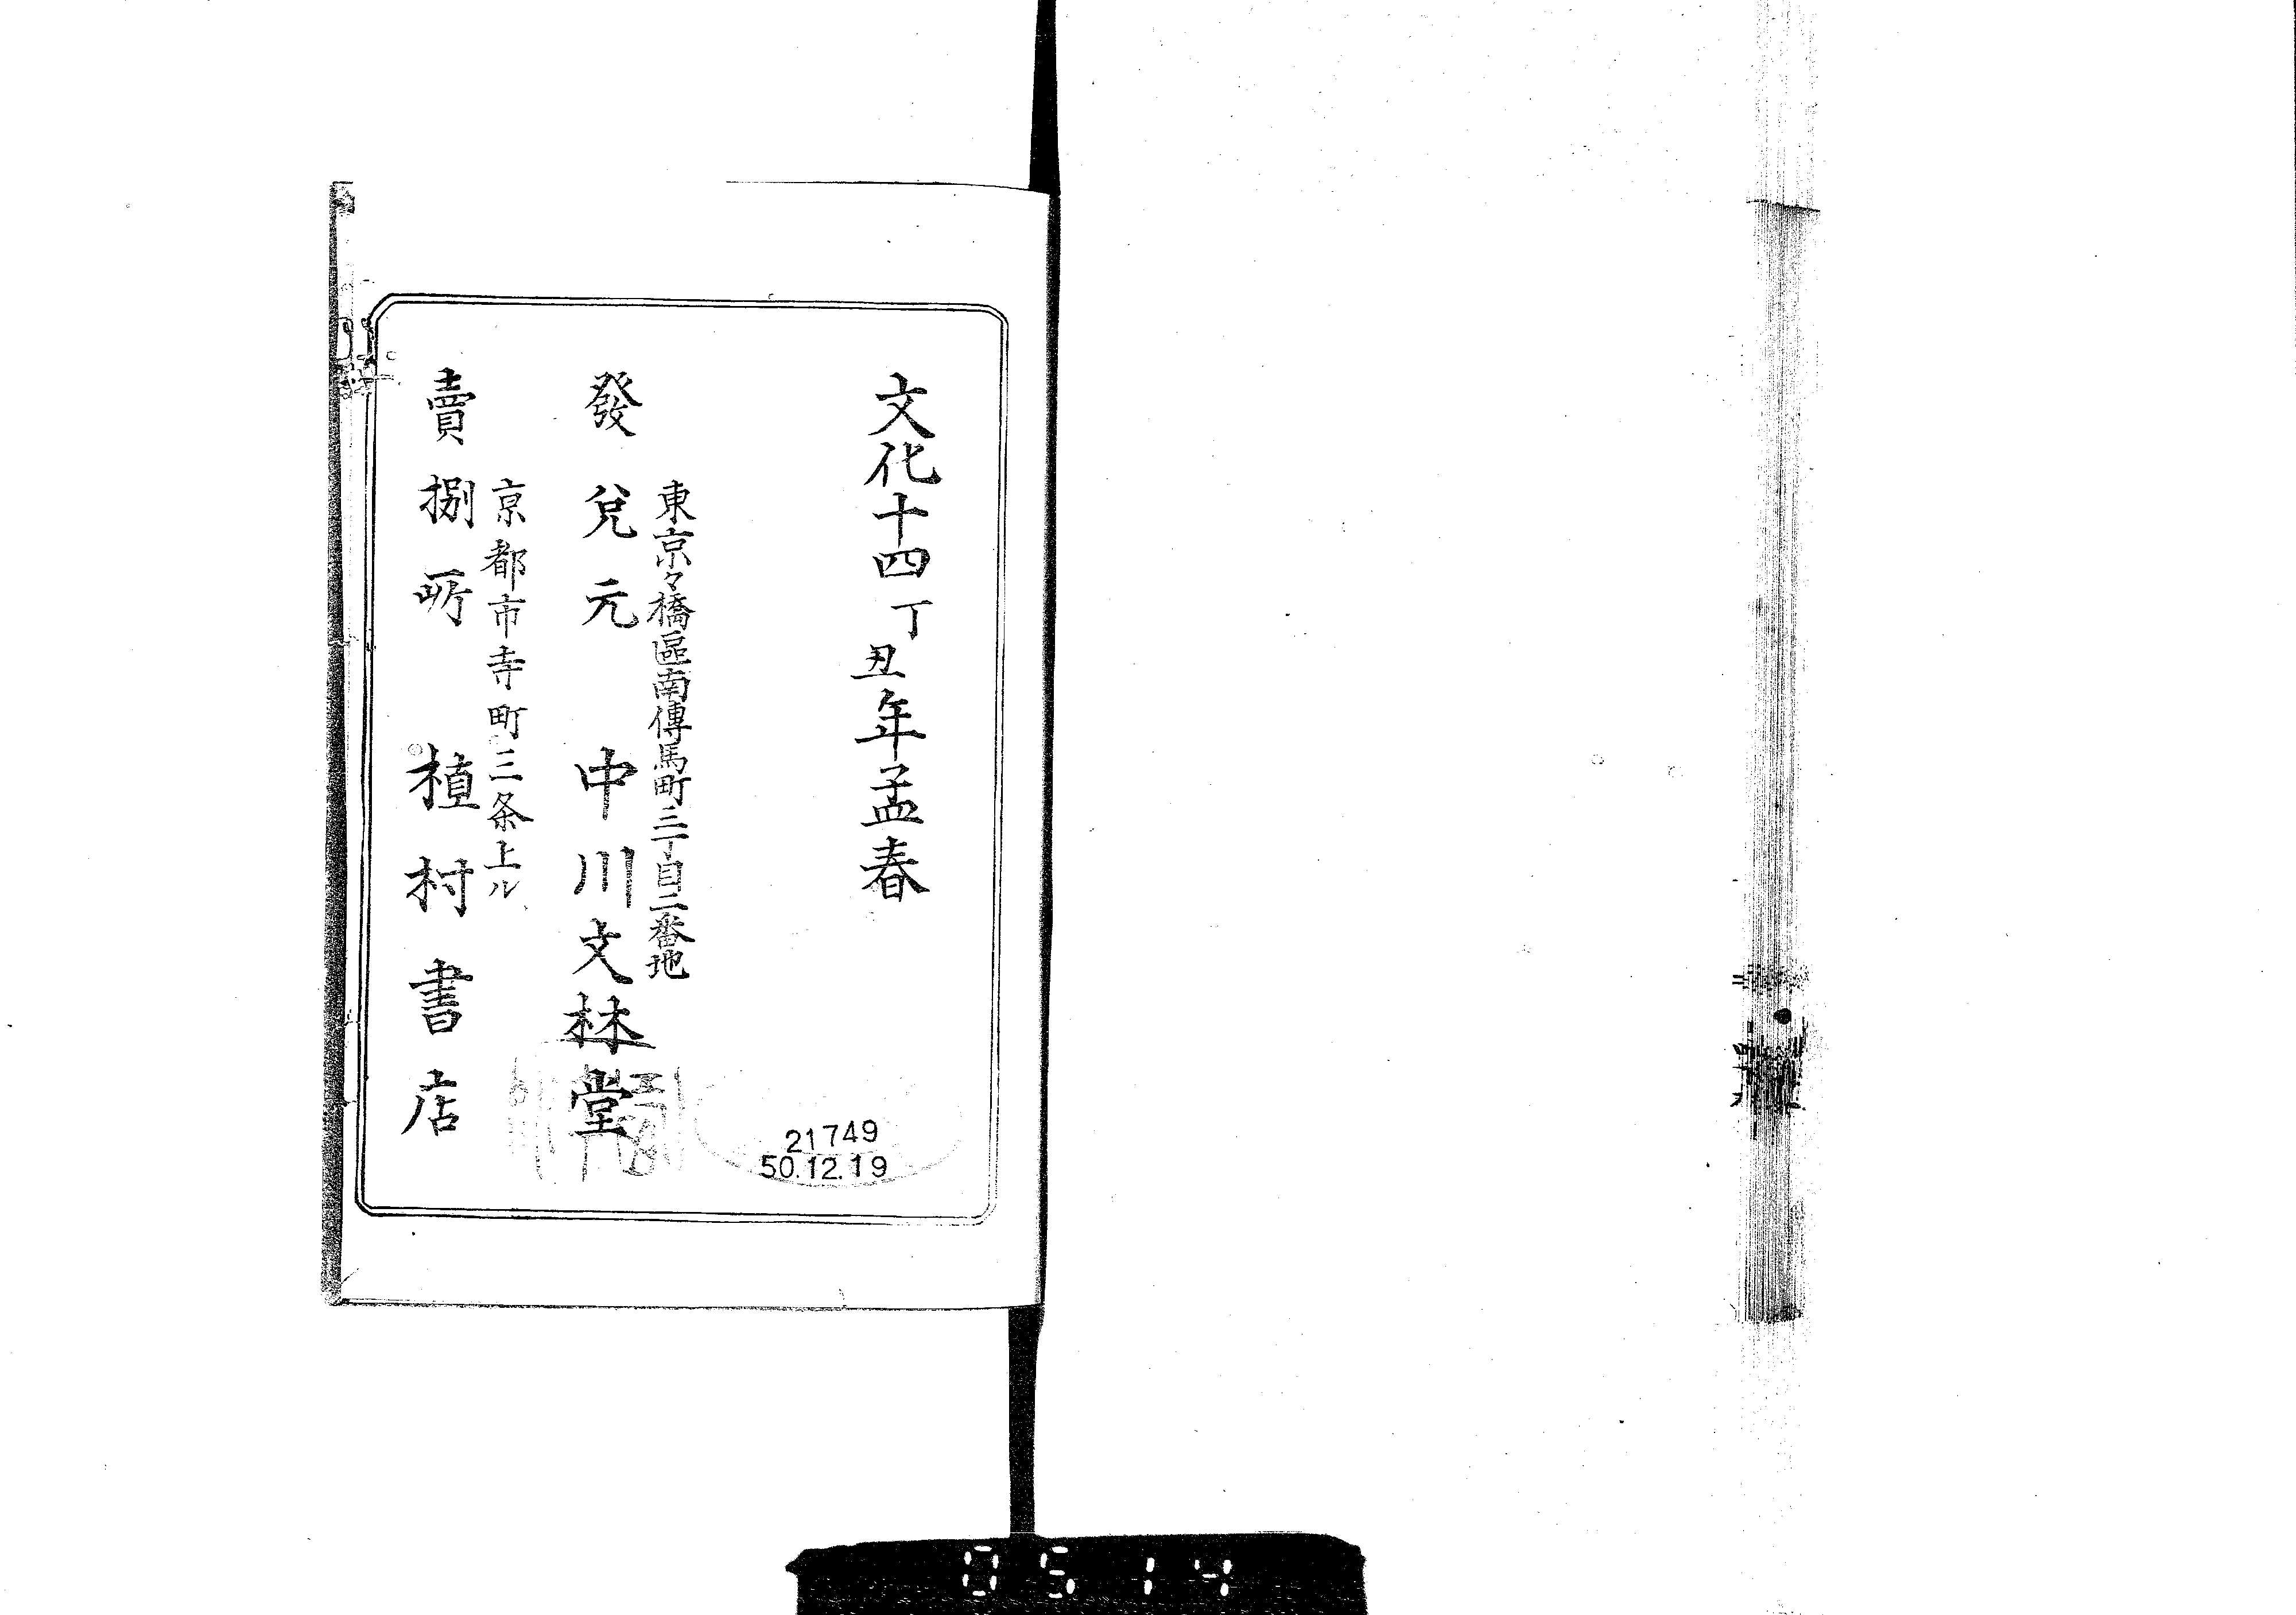 文化十四丁丑年孟春
東京々橋區南傳馬町三丁目二番地
發兌元 中川文林堂
京都市寺町三条上ル
賣捌所 植村書店
21749
50.12.19
0514